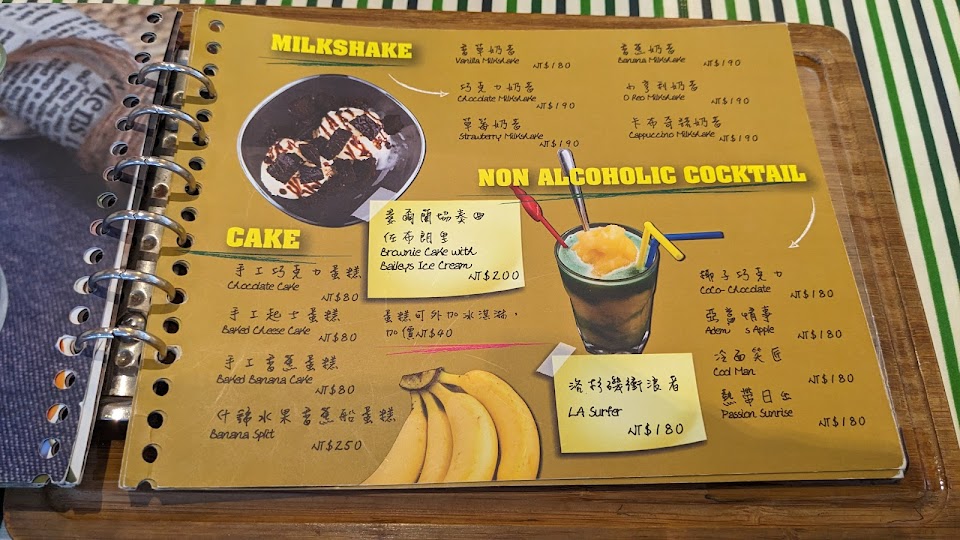 MILKSHAKE
香草奶昔
Vanilla Milkshake
NT$180
巧克力奶昔
Chocolate Milkshake
NT$190
草莓奶昔
Strawberry Milkshake
NT$190
香蕉奶昔
Banana Milkshake
NT$190
奶昔
O Reo Milkshake
NT$190
卡布奇諾奶昔
Cappuccino Milkshake
NT$190
NON ALCOHOLIC COCKTAIL
愛爾蘭協奏曲
佐布朗里
Brownie Cake with
Baileys Ice Cream
NT$200
CAKE
手工巧克力蛋糕
Chocolate Cake
NT$80
手工起士蛋糕
Baked Cheese Cake
NT$80
手工香蕉蛋糕
Baked Banana Cake
NT$80
什錦水果香蕉船蛋糕
Banana Split
NT$250
蛋糕可外加冰淇淋，
加價NT$40
洛杉磯衝浪者
LA Surfer
NT$180
椰子巧克力
CoCo-Chocolate
NT$180
亞當情事
Adem s Apple
NT$180
冷面笑匠
Cool Man
NT$180
熱帶日出
Passion Sunrise
NT$180